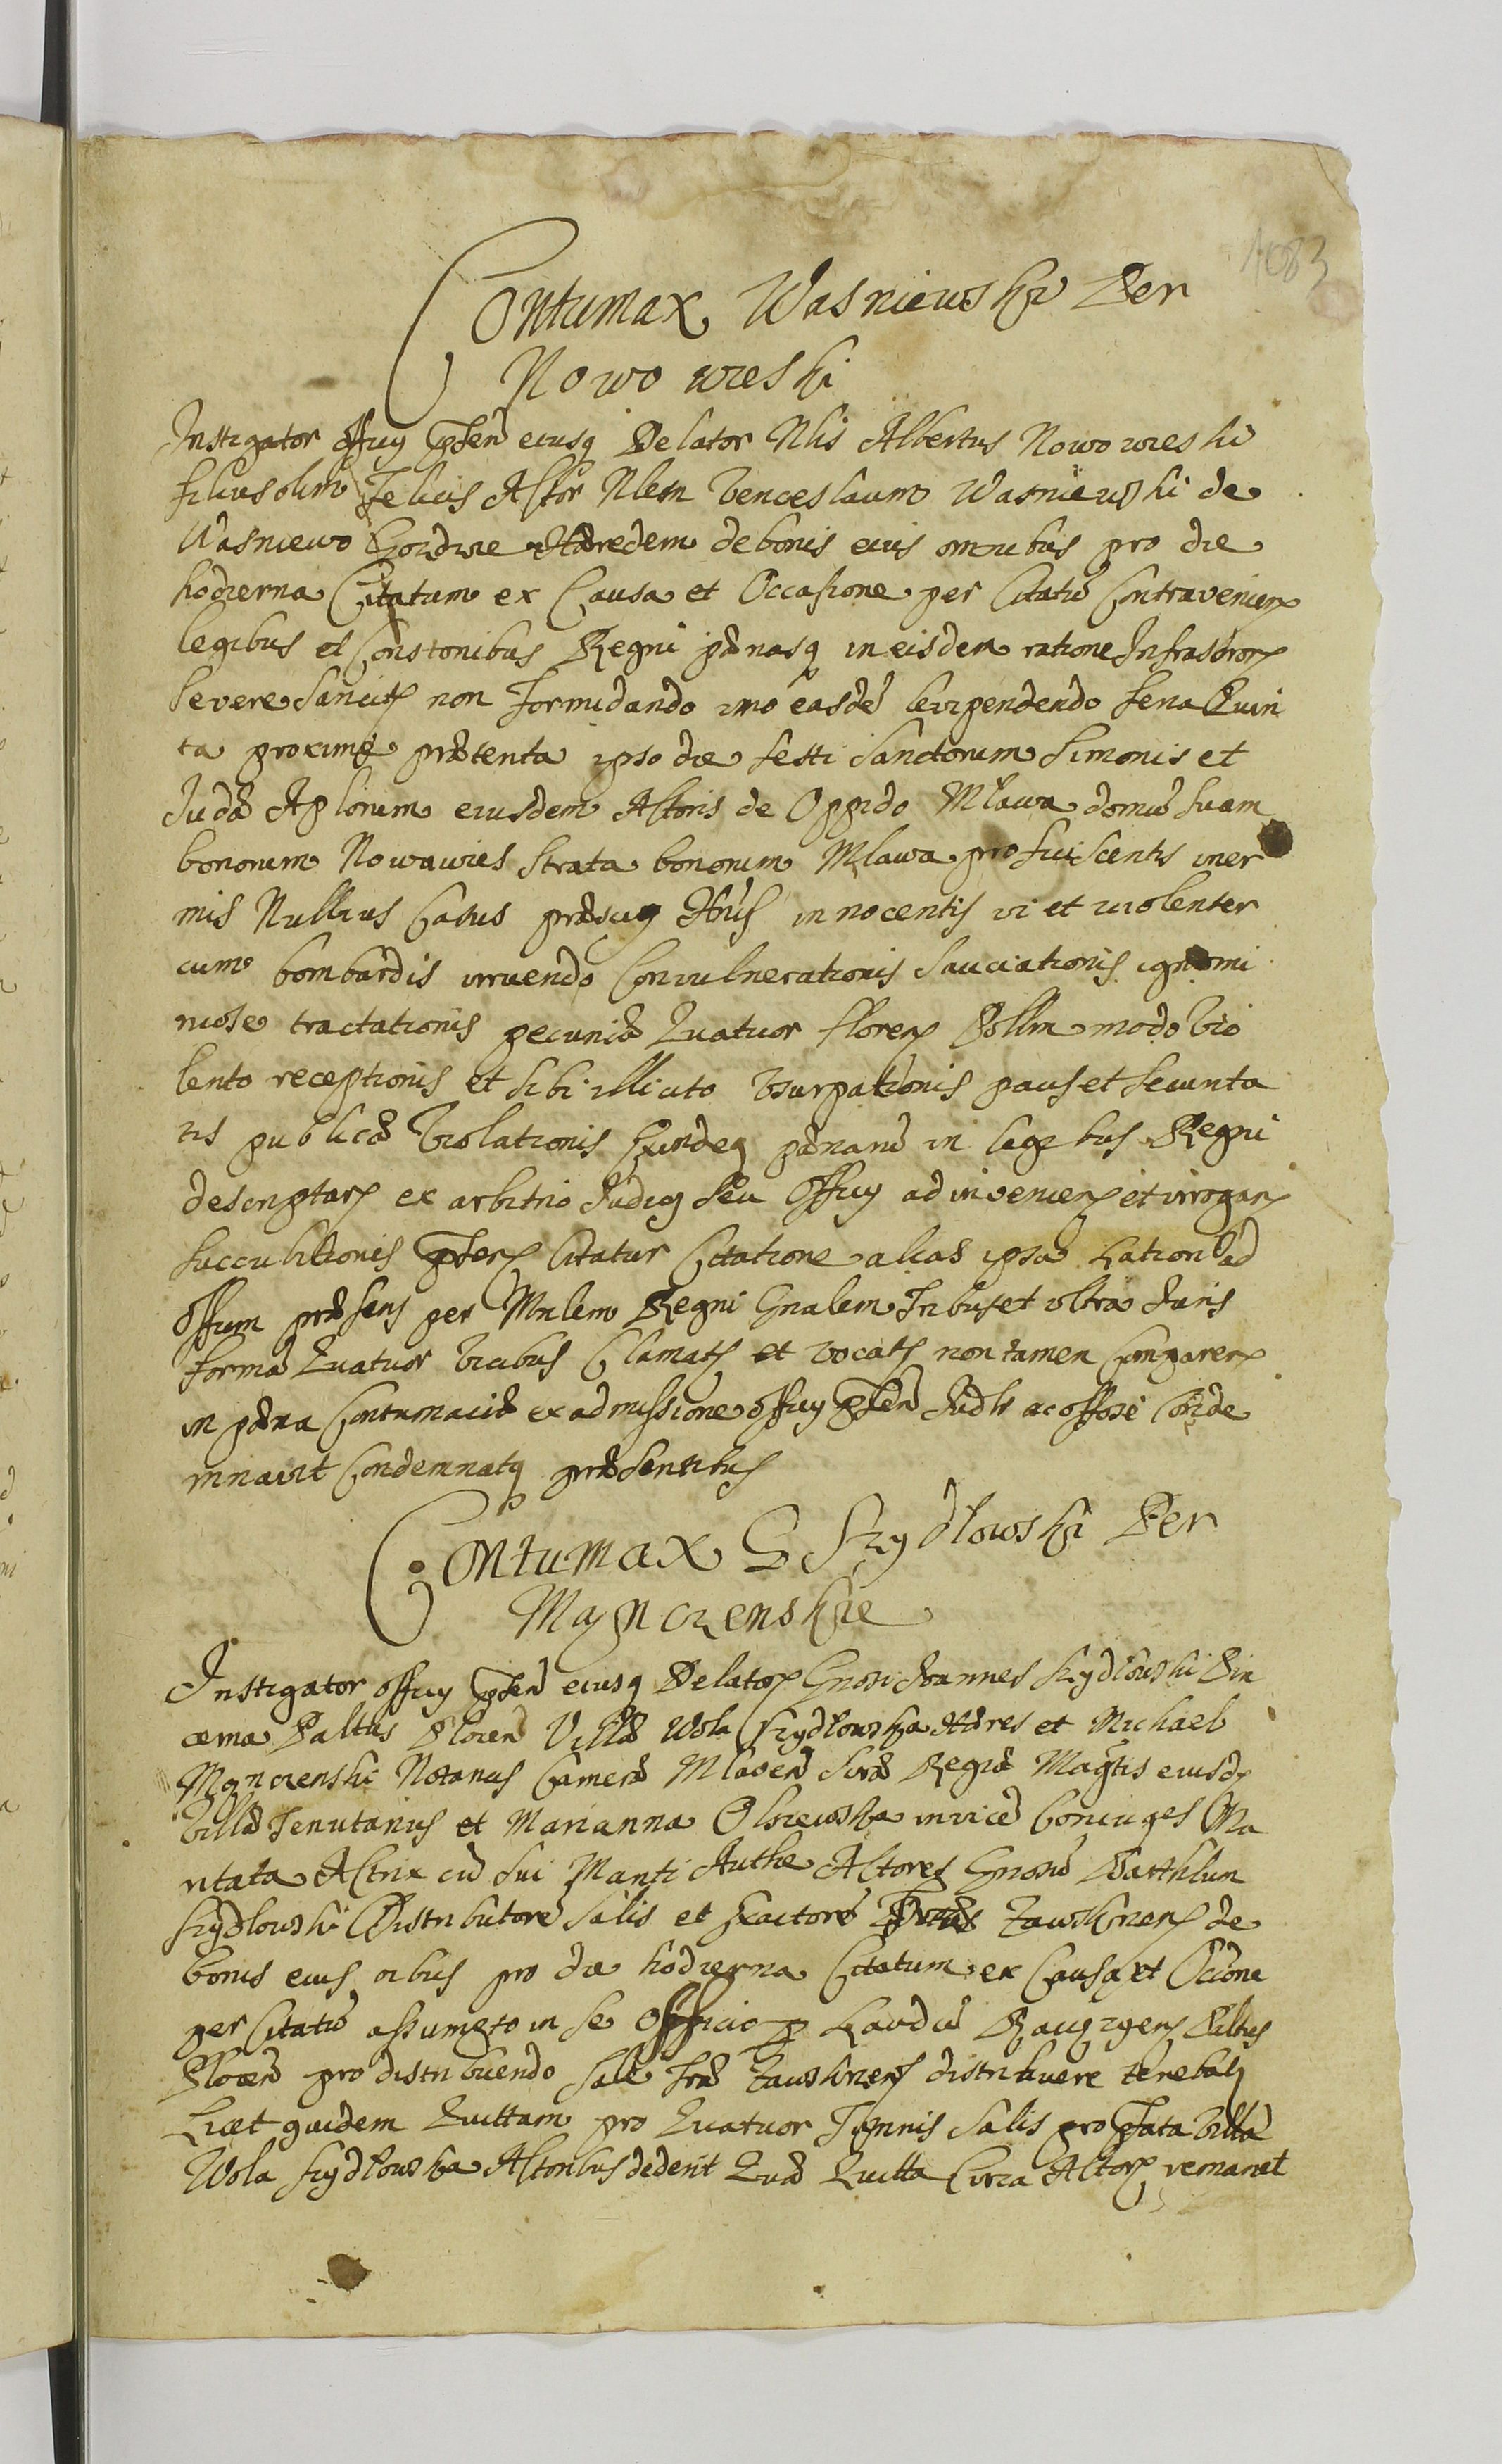 1083
Contumax Wasniewski Per
Nowowieski
Instigator offÿ pñtis eiusq Delator Nlis Albertus Nowowieski
filius olim Felicis Actor Nlem Venceslaum Wasniewski de
Wasniewo Gozdzie Hæredem de bonis eius omnibus pro die
hodierna Citatum ex Causa et Occasione per Citatũ Contravenien
legibus et Constonibus Regni pænasq in eisdem ratione Infrascrōr
severe sancit non formidando imo easdē levipendendo feria Quin
ta proxime præterita ipso die festi Sanctorum Simonis et
Judæ Aplorum eiusdem Actoris de Oppido Mlawa domũ suam
bonorum Nowawies strata bonorum Mlawa proficiscentis iner
mis Nullius Casus præscÿ Hnis innocentis vi et violenter
cum bombardis irruendo Convulnerationis Sauciationis ignomi
niose tractationis pecuniæ Quatuor floren Pollin modo Vio
lento receptionis et sibi illicito Usurpationis pacis et securita
tis publicæ Violationis Exindeq pænarũ in legibus Regni
descriptar ex arbitrio Judicÿ seu Offÿ ad invenien et irrogan
succubitionis citatur Citatione alias ipsa Lation ad
Offum præsens per Mnlem Regni Gnalem Tribus et ultra Juris
formã Quatuor Vicibus Clamat et vocat non tamen Comparen
in pæna Contumaciæ ex admissione offÿ pñtis Judlr ac offose Conde
mnavit Condemnatq præsentibus
Contumax G Szydlowski Per
Mgnczenskie
Instigator offÿ pñtis eiusq Delator Gnosi Joannes Szydlowski Pin
cerna Paltus Plocen Villæ Wola Szydlowska Hæres et Michael
Mgnczenski Notarius Cameræ Mlaven Sacræ Regiæ Magtis eiusd
Villæ Tenutarius et Marianna Olszewska invicē Coniuges Ma
ritata Actrix cũ sui Mariti Authe Actores Gnosũ Barthlum
Szydlowski Distributorē Salis et Exactorē Terræ Zawskrzen de
bonis eius oibus pro die hodierna Citatum ex Causa et Occione
per Citatũ assumpto in se Officio p Laudũ Raciÿzen Paltus
Plocen pro distribuendo Sale Træ Zawskrzen distribuere tenebat
Licet quidem Quittam pro Quatuor Tynnis Salis pro pfata Villa
Wola Szydlowska Actoribus dederit Quæ Quitta Circa Actor remanet